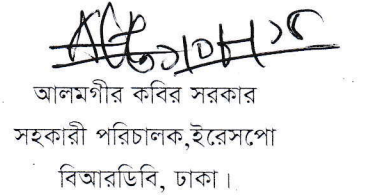 আলমগীর কবির সরকার
সহকারী পরিচালক,ইরেসপো
বিআরডিবি, ঢাকা।